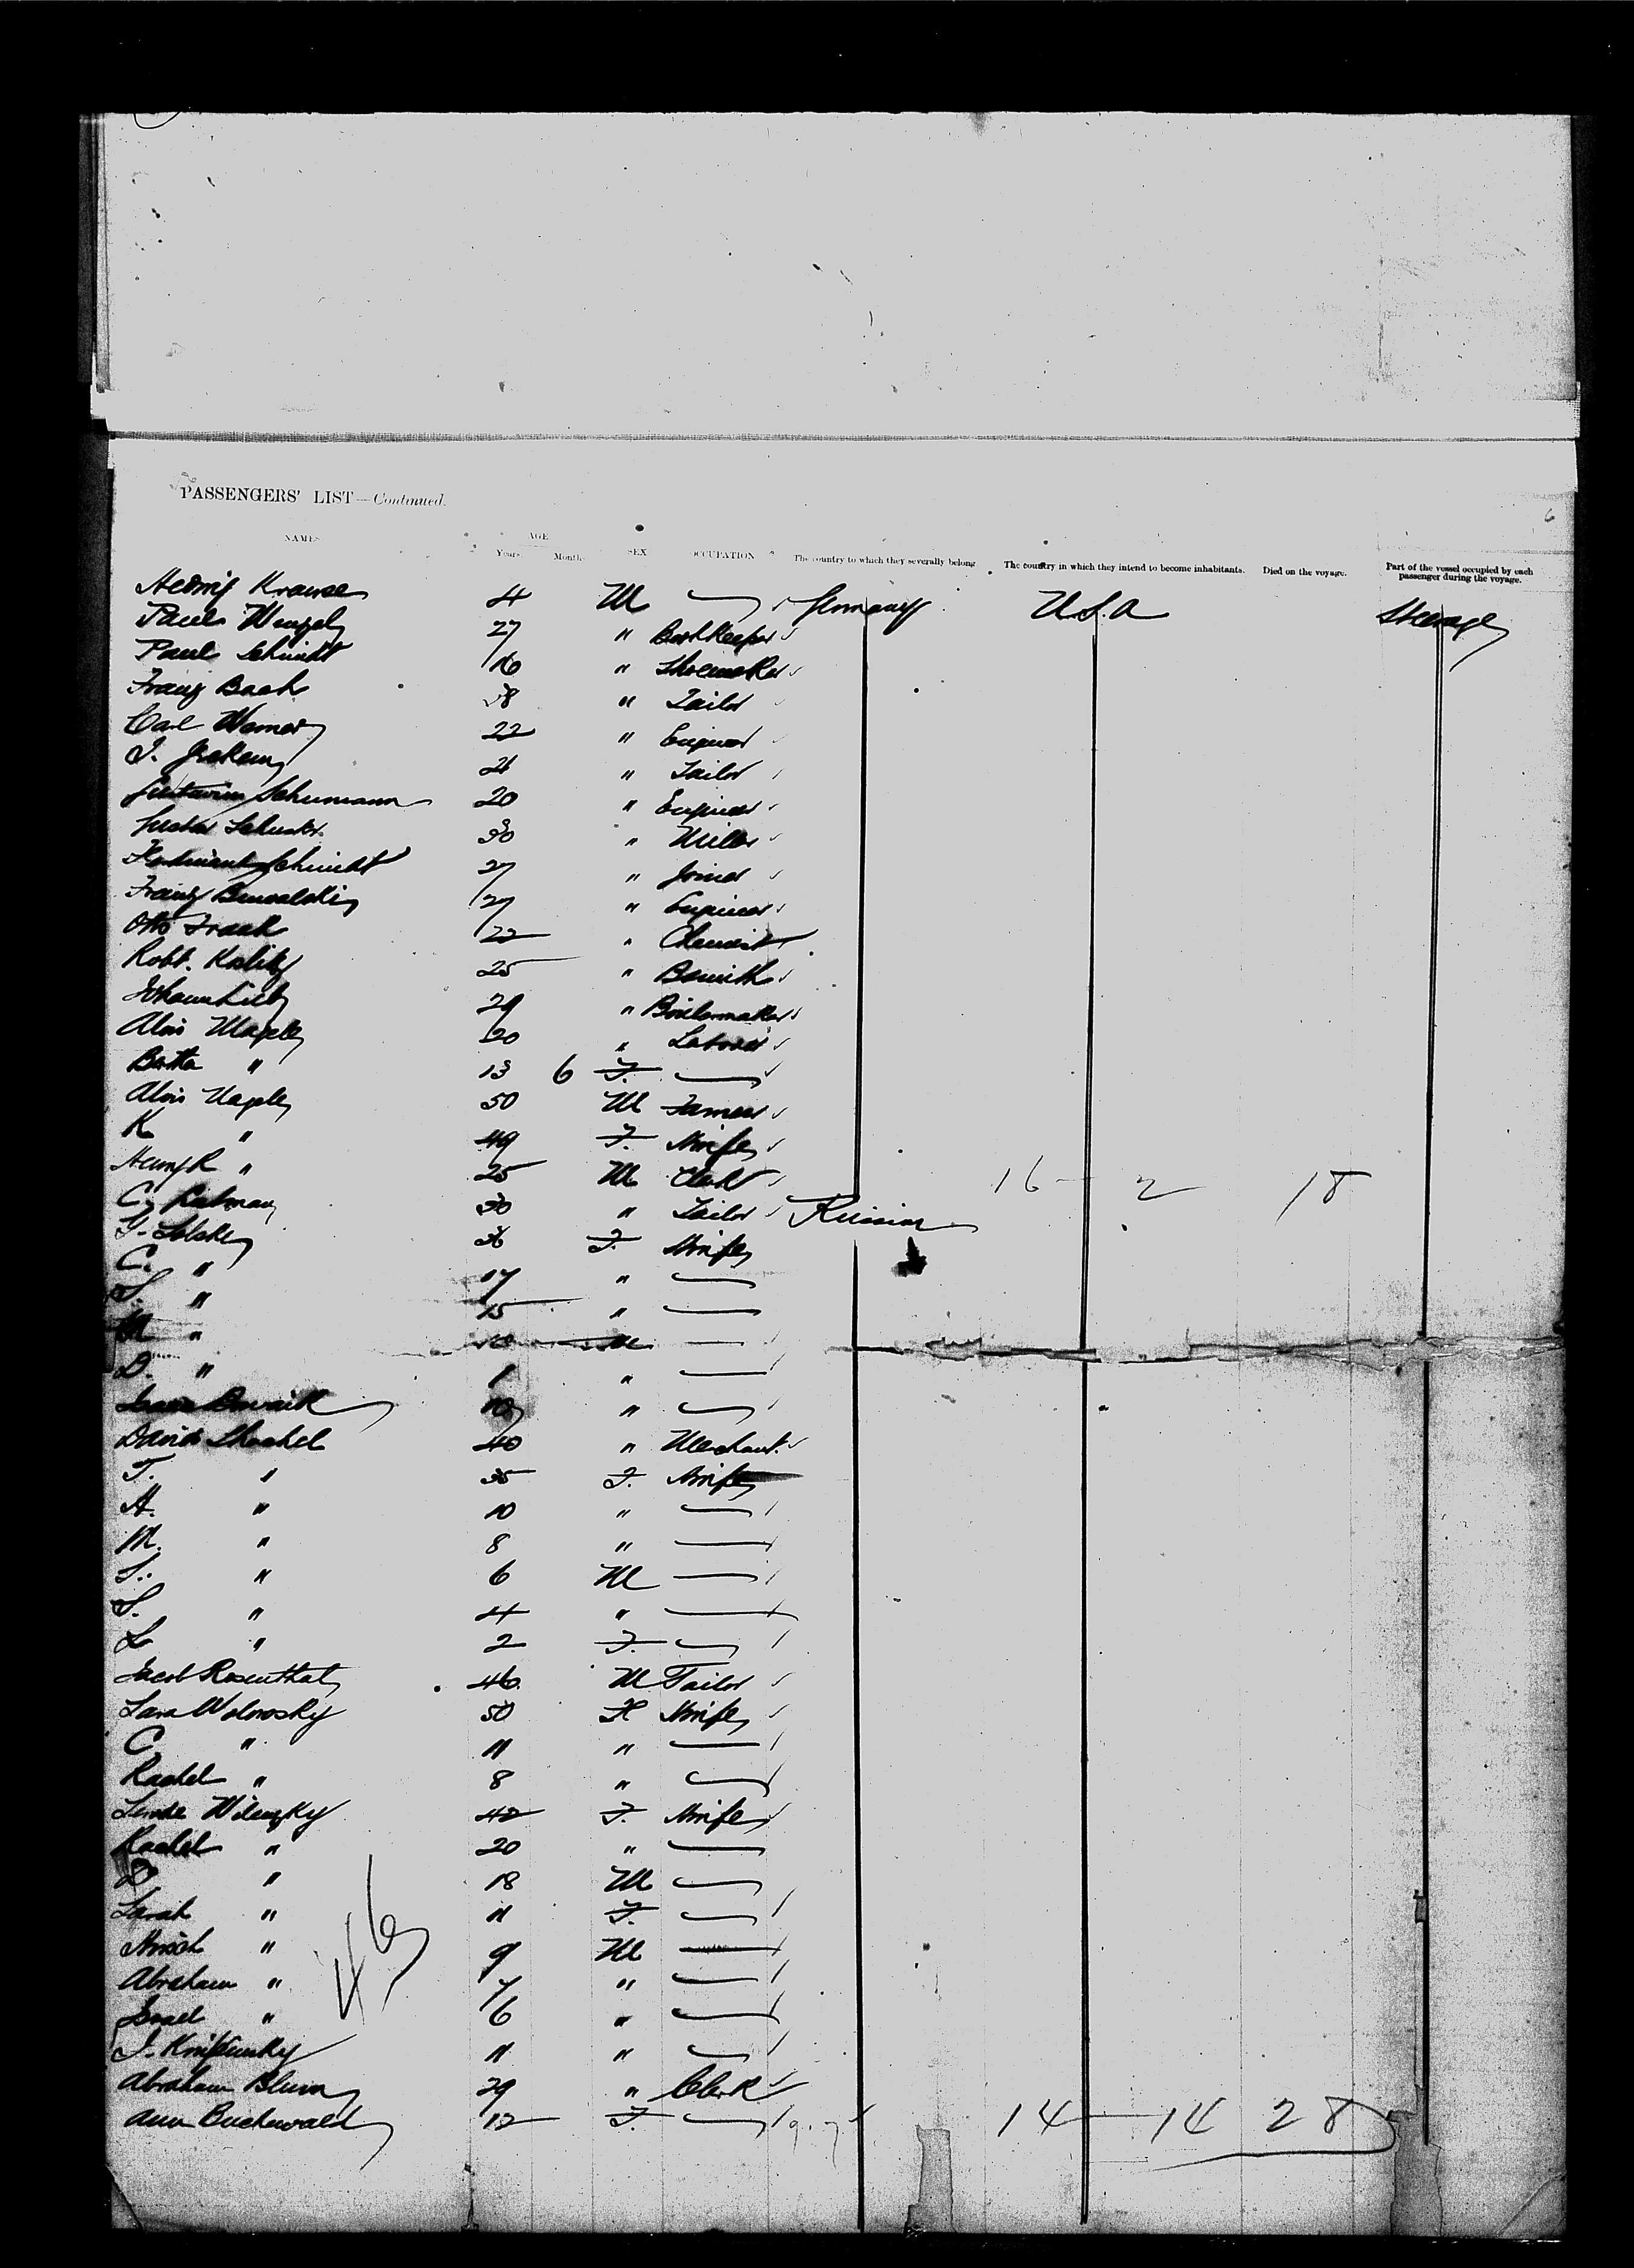 PASSENGERS' LIST—Continued.
6
NAMES AGE SEX OCCUPATION The country to which they severally belong. The country in which they intend to become inhabitants. Died on the voyage. Part of the vessel occupied by each passenger during the voyage.
Years. Months.
Hedwig Krause 4 M Germany U.S.A Steerage
Paul Wenzel 27 " Bookkeeper
Paul Schmidt 16 " Shoemaker
Franz Bach 38 " Tailor
Carl Werner 22 " Engineer
21 " Tailor
Schumann 20 " Engineer
Gustav Schuster 30 " Miller
Schmidt 27 " Joiner
Franz 27 " Engineer
Otto Frank 22 " Chemist
Robt. 25 " Bsmith
Johann 29 " Boilermaker
Alois 20 " Labourer
Bertha " 13 6 F.
Alois 50 M Farmer
K " 49 F. Wife
" 25 M Clerk
16 — 2 18
C. 30 " Tailor Russian
36 F. Wife
C. " 17 "
S. " 15 "
M " 10 M
D. " 1 "
10 "
David 40 " Merchant
T. " 35 F. Wife
A. " 10 "
M. " 8 "
S. " 6 M
S. " 4 "
L " 2 F.
Jacob Rosenthal 46 M Tailor
Sara Wolowsky 50 F Wife
C " 11 "
Rachel " 8 "
Wilenzky 42 F. Wife
Rachel " 20 "
" 18 M
Sarah " 11 F.
Hirsch " 9 M
Abraham " 7 "
Israel " 6 "
11 "
Abraham Blum 29 " Clerk
Ann Buchwald 12 F.
14 — 14 28
46